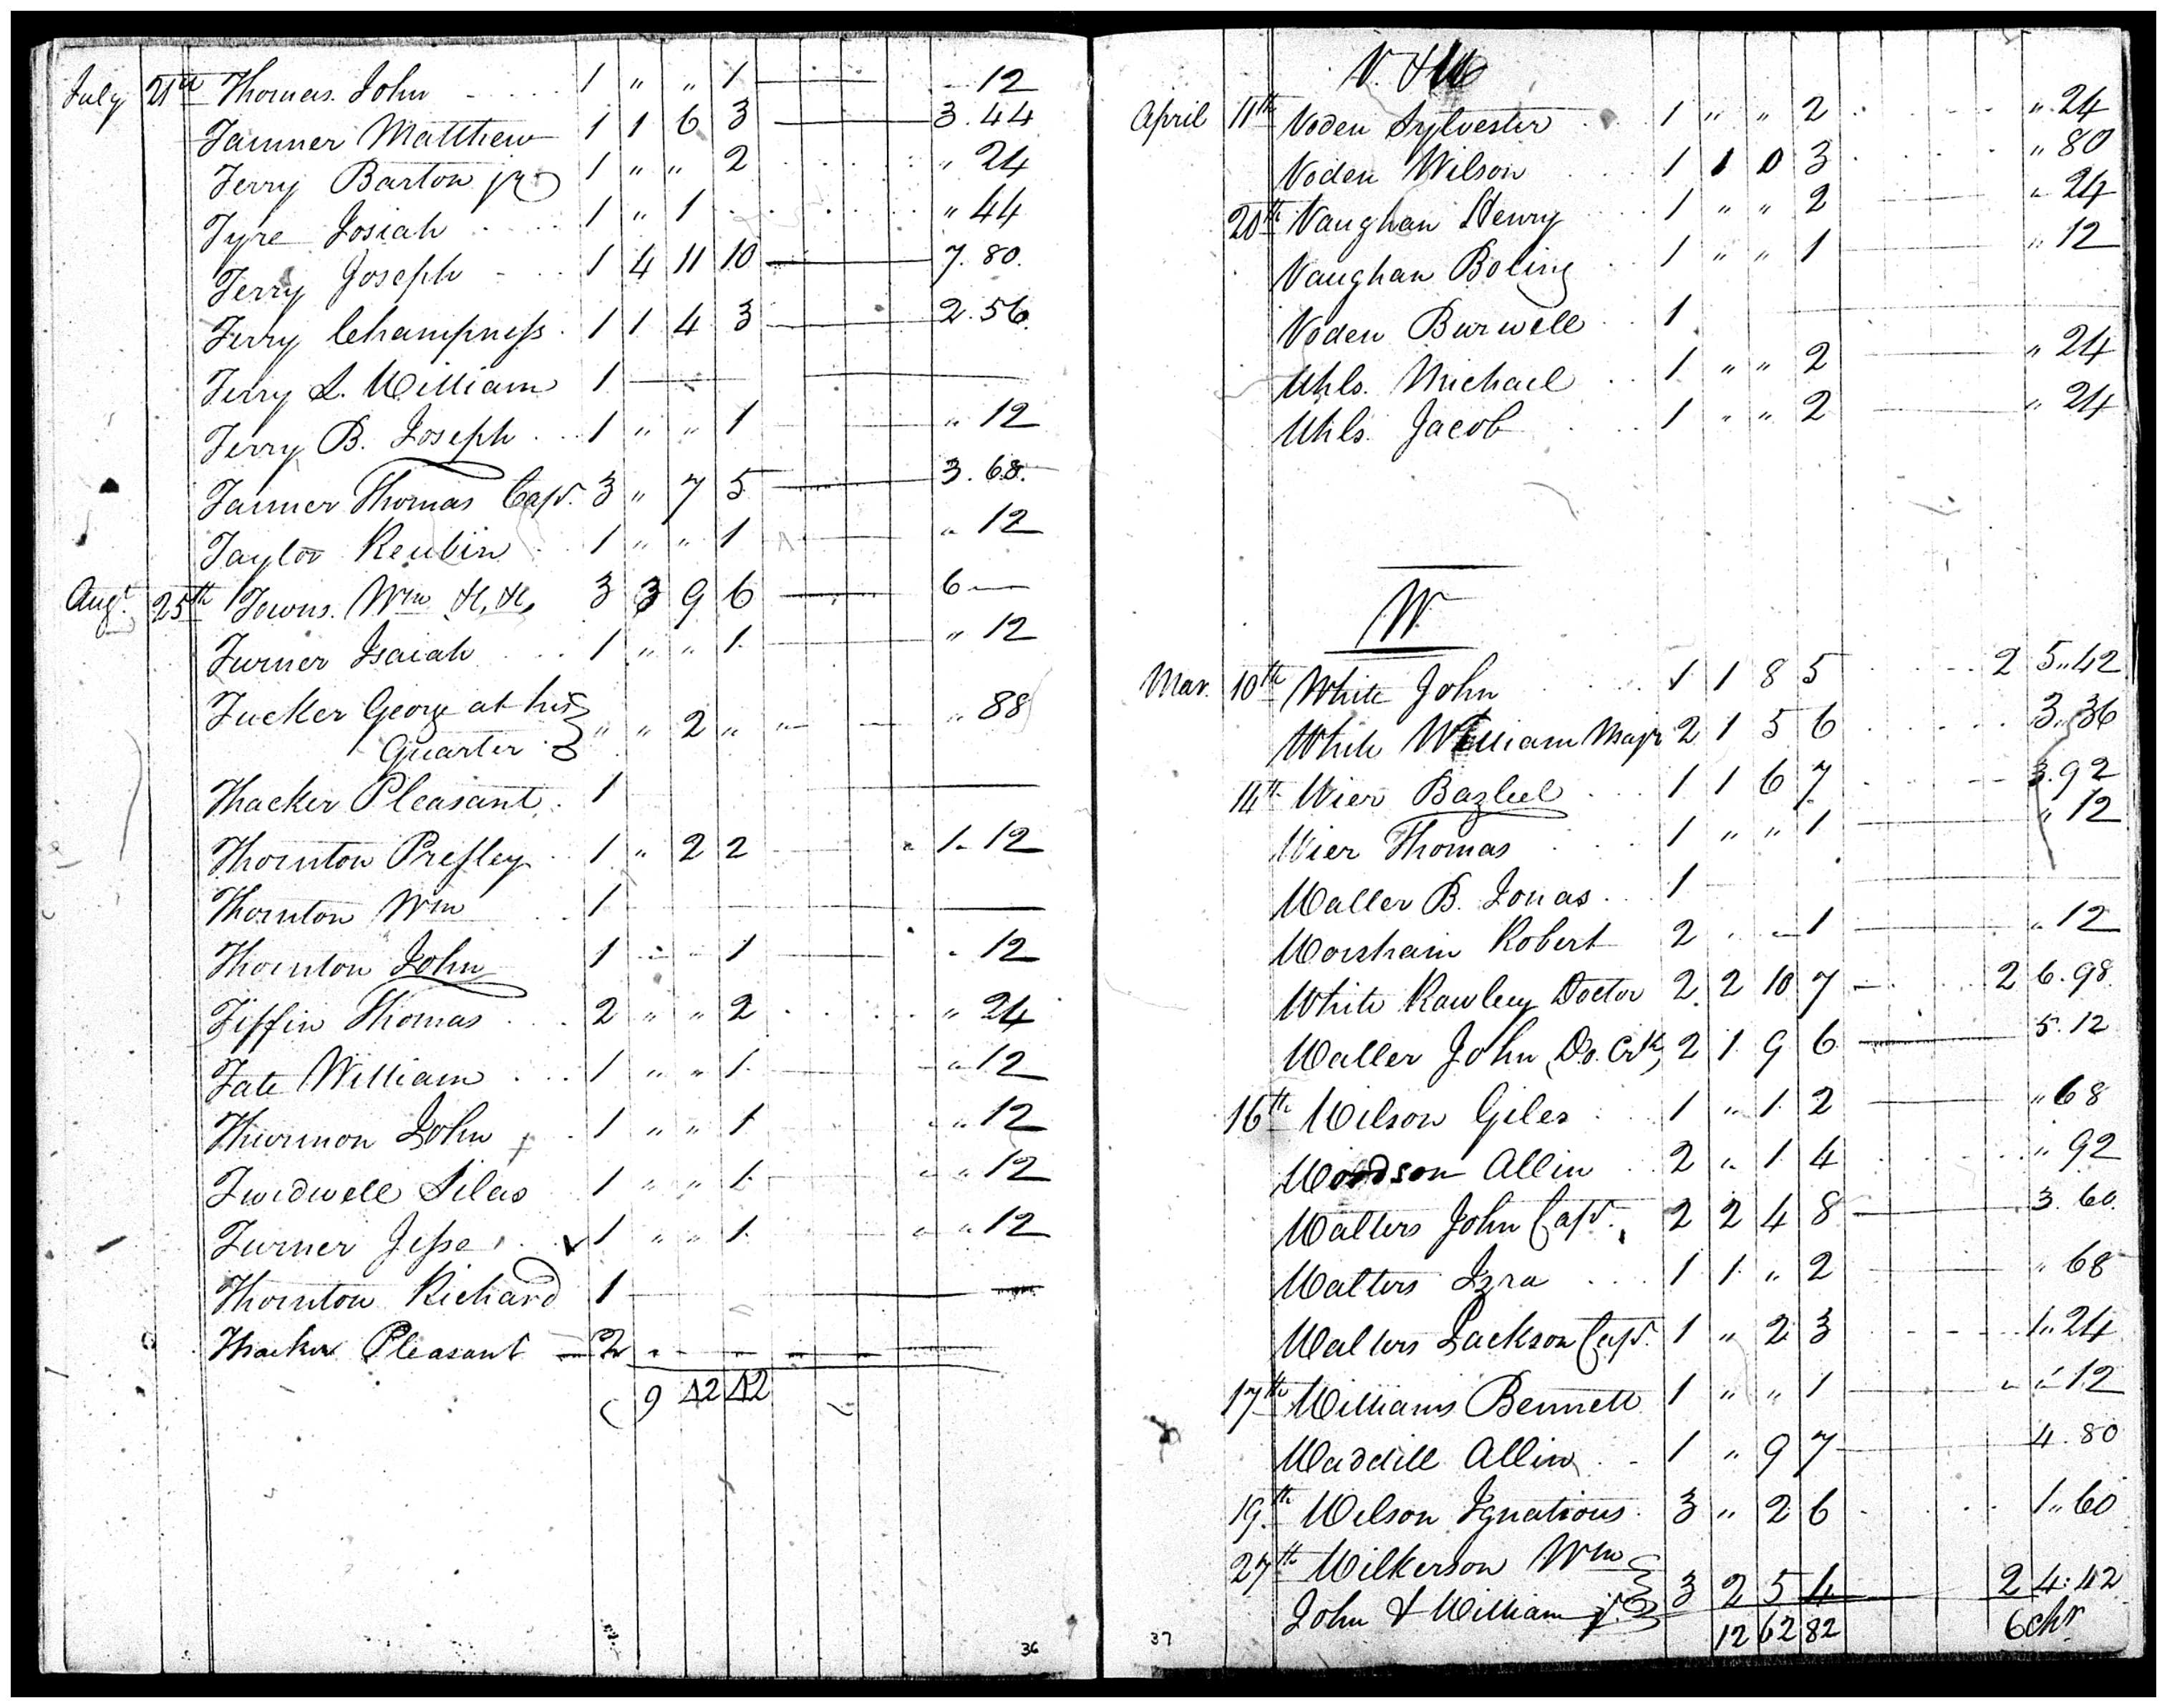 July 21st Thomas John 1 " " 1 12
Tanner Matthew 1 1 6 3 3.44
Terry Barton jr 1 " " 2 " 24
Tyre Josiah 1 " 1 " 44
Terry Joseph 1 4 11 10 7.80
Terry Champness 1 1 4 3 2.56
Terry L. William 1
Terry B. Joseph 1 " " 1 " 12
Tanner Thomas Capt. 3 " 7 5 3.68
Taylor Reubin 1 " " 1 " 12
Augt. 25th Towns. Wm 3 3 9 6 6
Turner Isaiah 1 " " 1 " 12
Tucker George at his
Quarter " " 2 " " " 88
Thacker Pleasant 1
Thornton Presley 1 " 2 2 1.12
Thornton Wm 1
Thornton John 1 " " 1 " 12
Tiffin Thomas 2 " " 2 " 24
Tate William 1 " " 1 " 12
Thurmon John 1 " " 1 " 12
Twidwell Silas 1 " " 1 " 12
Turner Jesse 1 " " 1 " 12
Thornton Richard 1
Thacker Pleasant 2
9 42 42
36
V. & U
April 11th Voden Sylvester 1 " " 2 " 24
Voden Wilson 1 1 0 3 " 80
20th Vaughan Henry 1 " " 2 " 24
Vaughan Boling 1 " " 1 " 12
Voden Burwell 1
Uhls. Michael 1 " " 2 " 24
Uhls. Jacob 1 " " 2 " 24
W
Mar. 10th White John 1 1 8 5 2 5.42
White William Majr 2 1 5 6 3.36
14th Wier Bazleel 1 1 6 7 3.92
Wier Thomas 1 " " 1 " 12
Waller B. Jonas 1
Worsham Robert 2 " " 1 " 12
White Rawley Doctor 2 2 10 7 2 6.98
Waller John (Do. Crk) 2 1 9 6 5.12
16th Wilson Giles 1 " 1 2 " 68
Woodson Allin 2 " 1 4 " 92
Walters John Capt. 2 2 4 8 3.60
Walters Izra 1 1 " 2 " 68
Walters Jackson Capt. 1 " 2 3 1.24
17th Williams Bennett 1 " " 1 " 12
Waddill Allin 1 " 9 7 4.80
19th Wilson Ignatious 3 " 2 6 1.60
27th Wilkerson Wm
John & William jr. 3 2 5 4 2 4.42
12 62 82 6chr
37